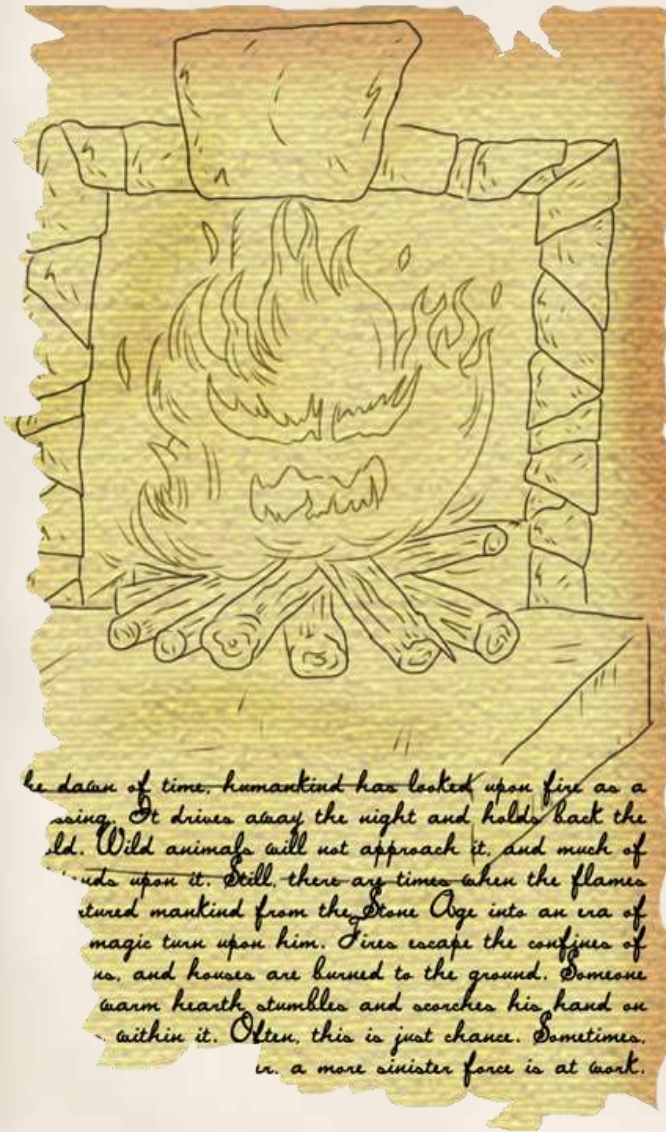 he dawn of time, humankind has looked upon fire as a
ssing. It drives away the night and holds back the
ld. Wild animals will not approach it, and much of
ends upon it. Still, there are times when the flames
rtured mankind from the Stone Age into an era of
magic turn upon him. Fires escape the confines of
ns, and houses are burned to the ground. Someone
warm hearth stumbles and scorches his hand on
within it. Often, this is just chance. Sometimes,
er, a more sinister force is at work.